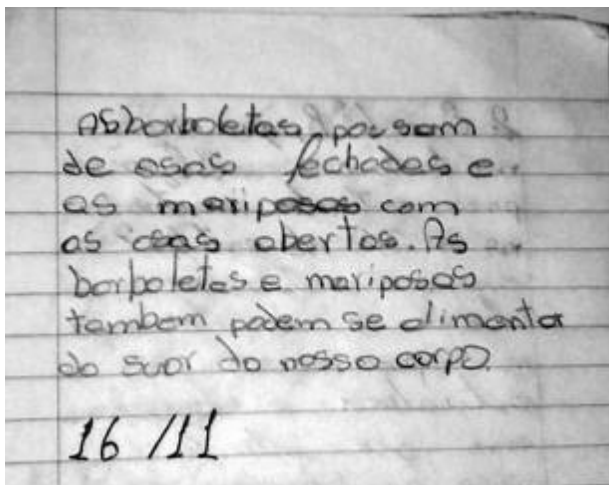 As borboletas pousam
de asas fechadas e
as mariposas com
as asas abertas. As
borboletas e mariposas
tambem podem se alimentar
do suor do nosso corpo.
16/11